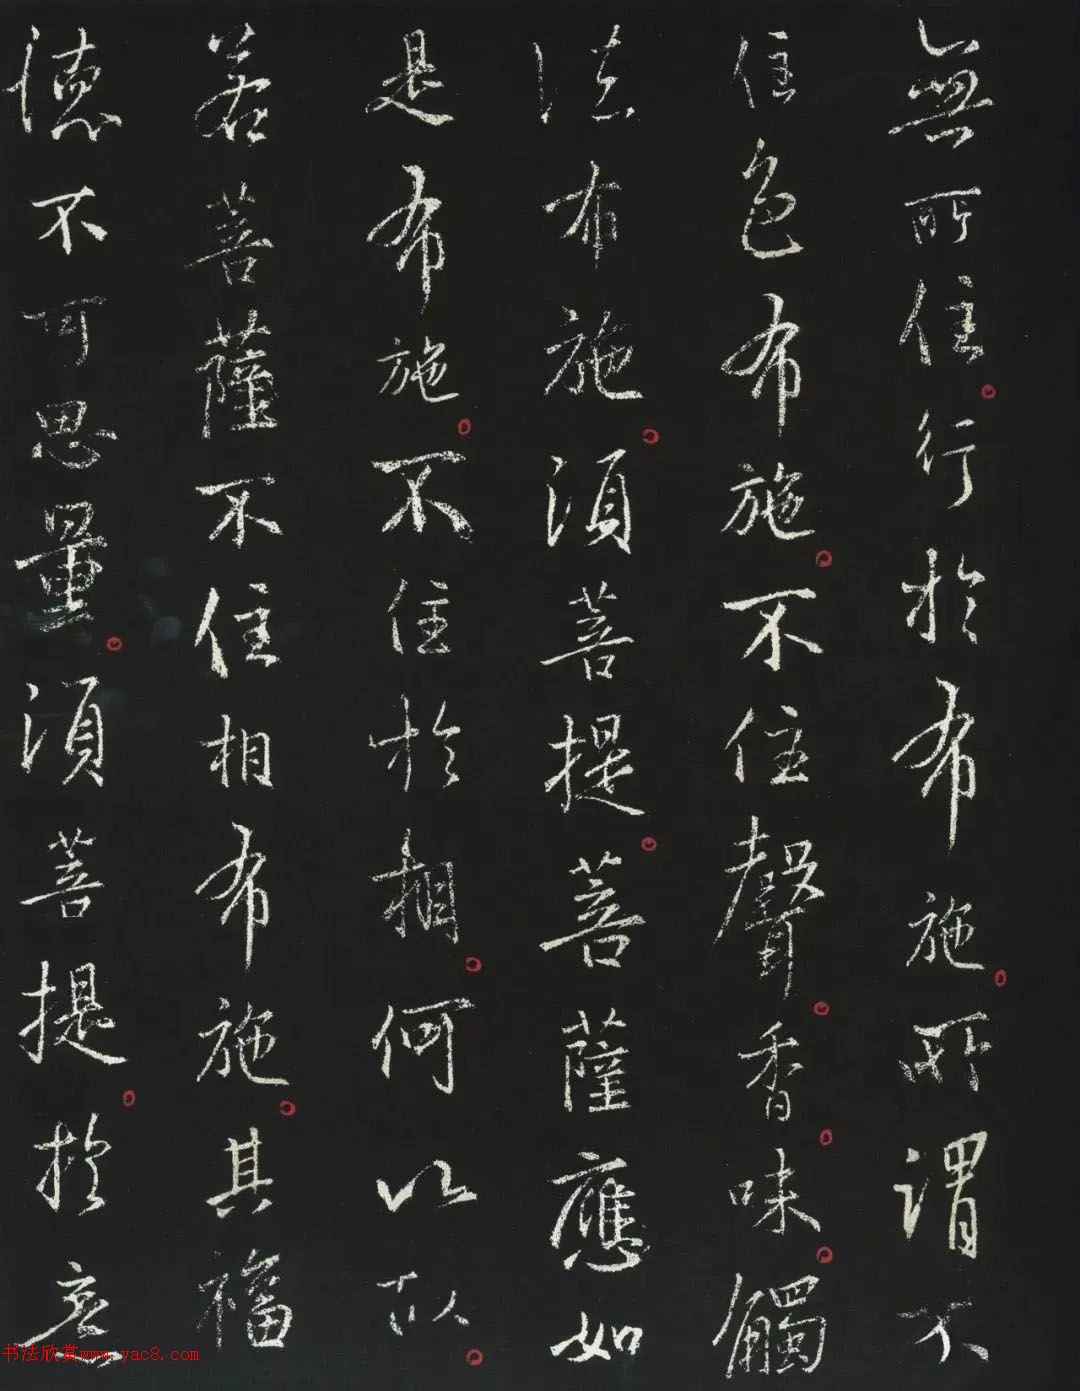 無所住行於布施所謂不
住色布施不住聲香味觸
法布施須菩提菩薩應如
是布施不住於相何以故
若菩薩不住相布施其福
德不可思量須菩提於意
书法欣赏www.yac8.com